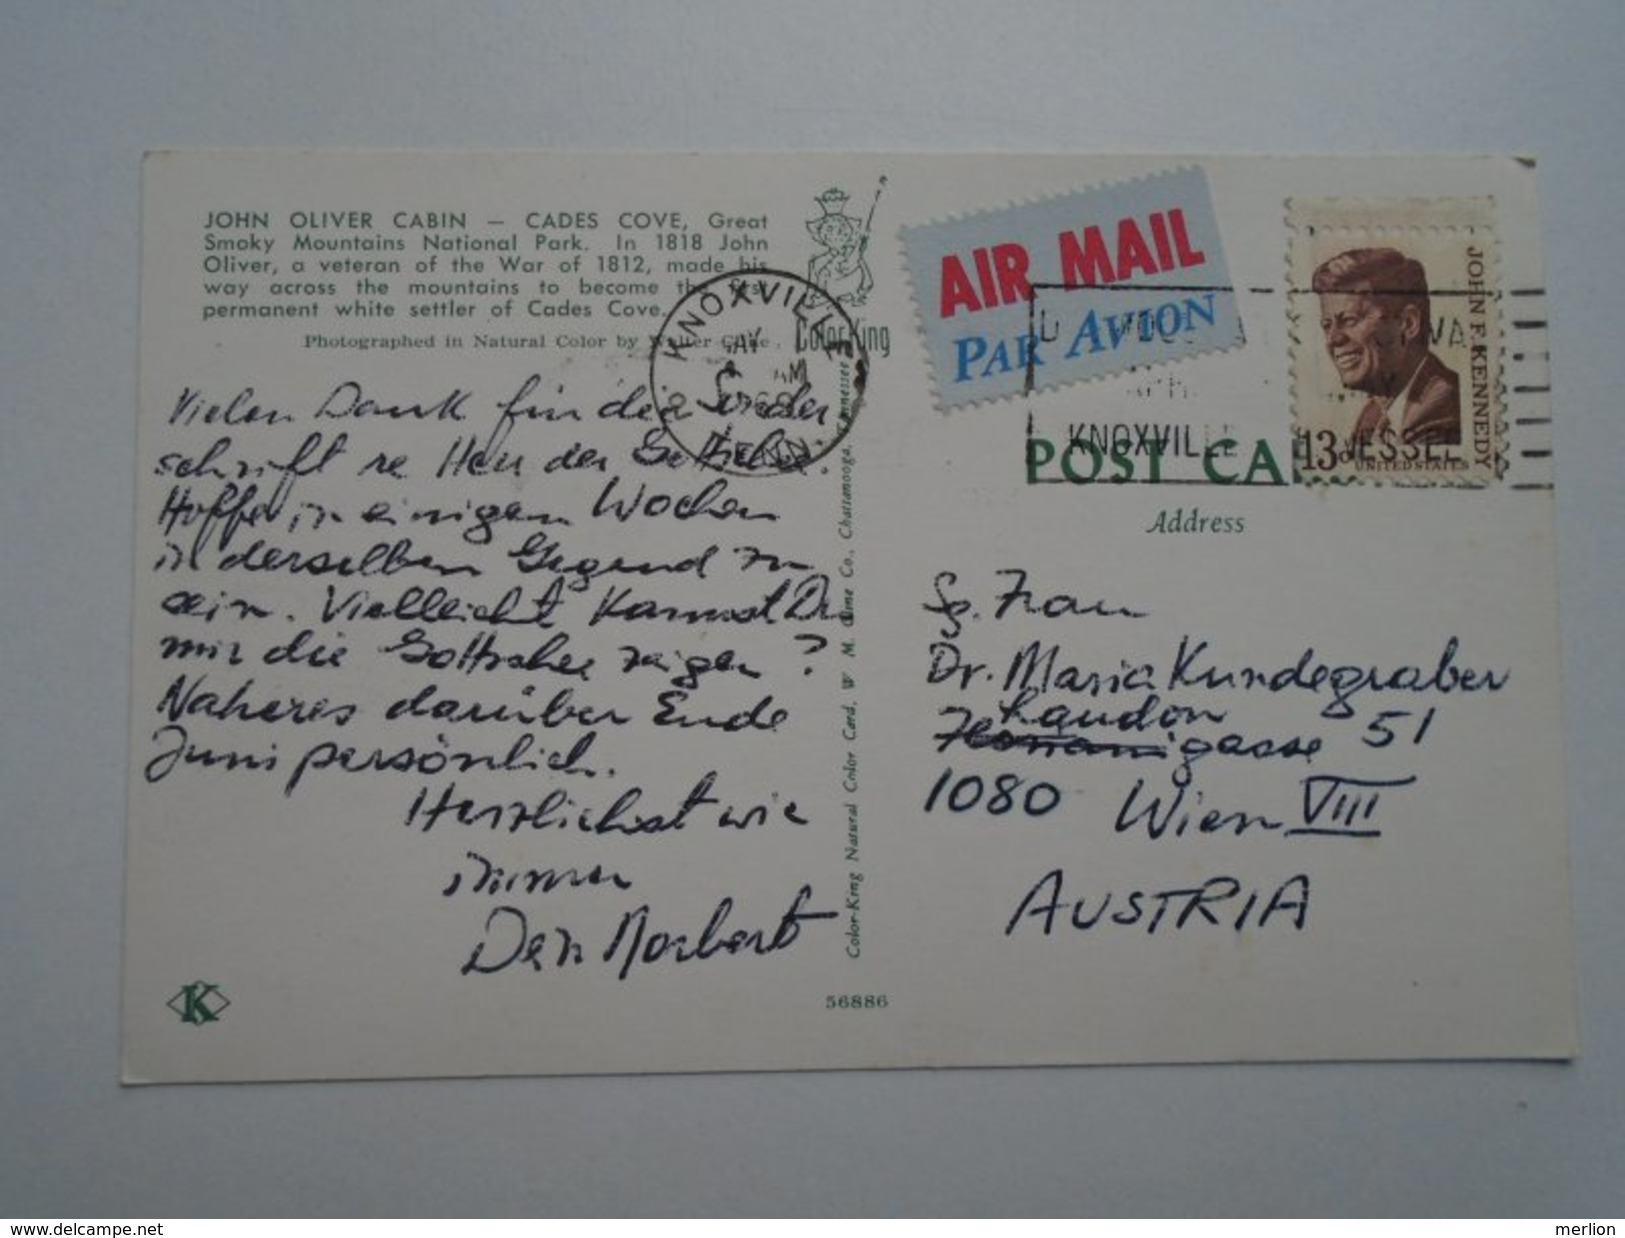 JOHN OLIVER CABIN — CADES COVE, Great
Smoky Mountains National Park. In 1818 John
Oliver, a veteran of the War of 1812, made his
way across the mountains to become the first
permanent white settler of Cades Cove.
Photographed in Natural Color by Walter Cline
Color-King
KNOXVILLE
MAY
AM
1968
TENN.
AIR MAIL
PAR AVION
JOHN F. KENNEDY
13c
UNITED STATES
KNOXVILLE
POST CA
Address
Vielen Dank für die Sonder
schrift
der Gottschee.
Hoffe in einigen Wochen
in derselben Gegend zu
sein. Vielleicht kannst Du
mir die Gottschee zeigen?
Näheres darüber Ende
Juni persönlich.
Herzlichst wie
immer
Dein Norbert
Frau
Dr. Maria Kundegraber
Laudon
gasse 51
1080 Wien VIII
AUSTRIA
Color-King Natural Color Card, W. M. Cline Co., Chattanooga, Tennessee
K
56886
merlion
http://www.delcampe.net